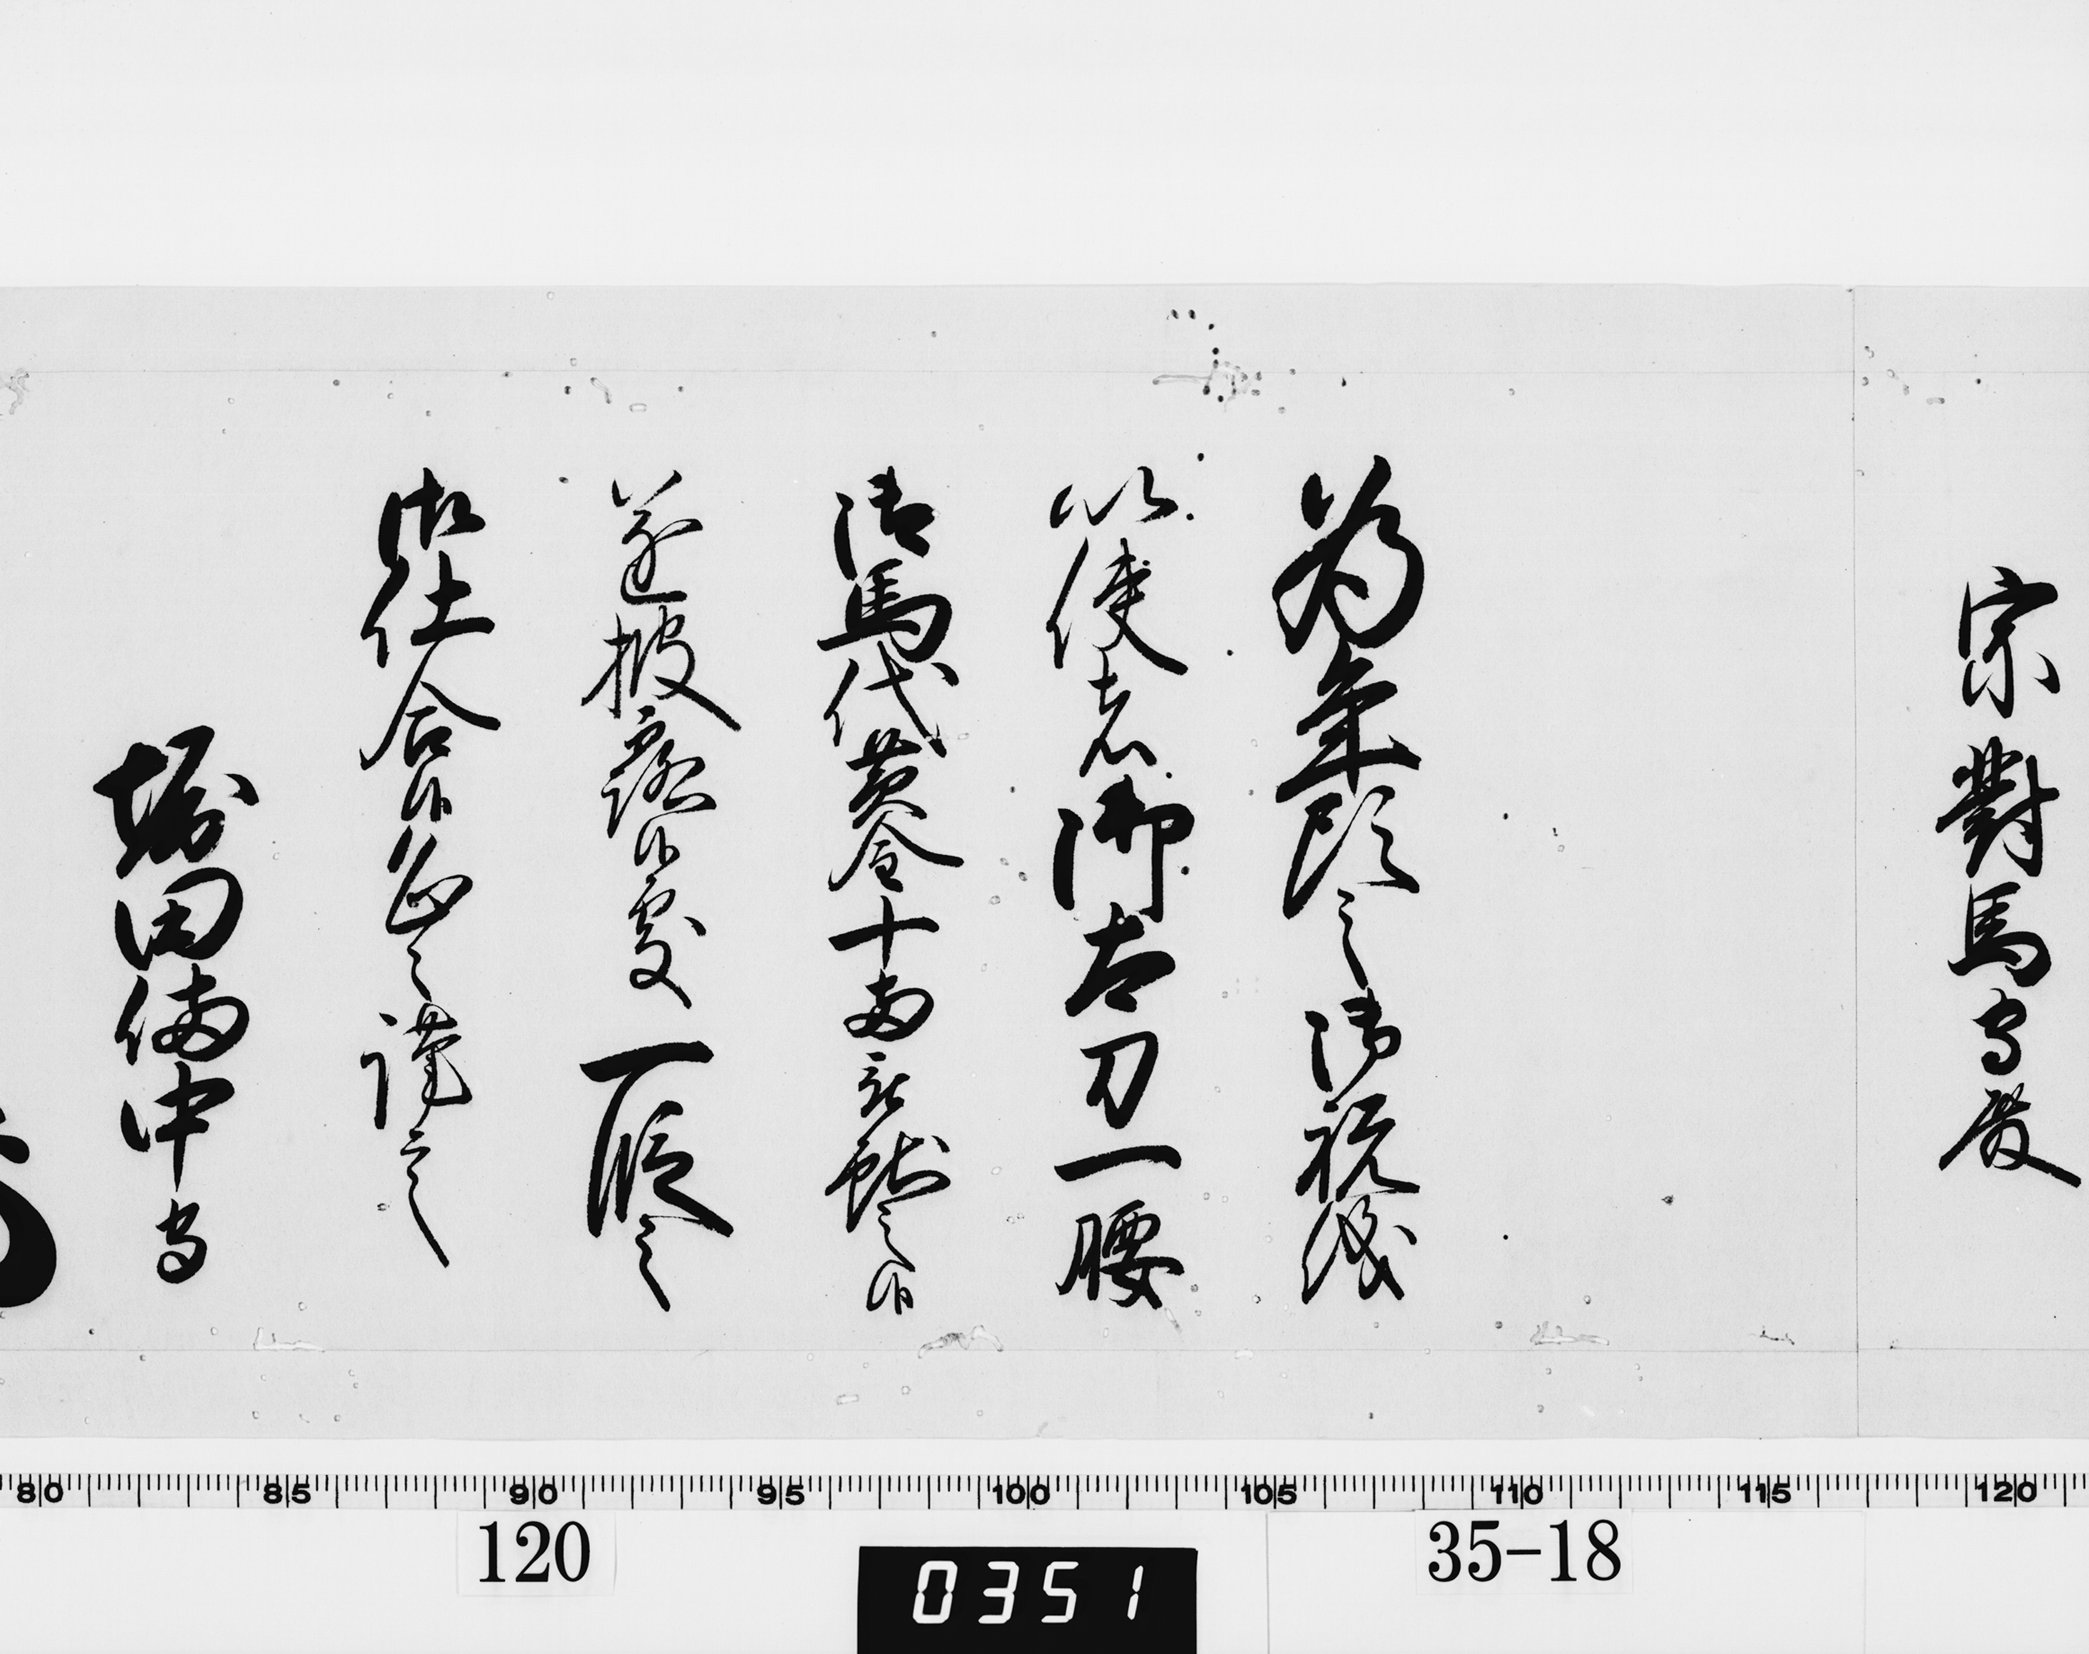 宗對馬守殿
為年頭之御祝儀
以使者御太刀一腰
御馬代黄金十両被献之候
遂披露候處一段之
御仕合候恐々謹言
堀田備中守
80 85 90 95 100 105 110 115 120
120
0351
35-18